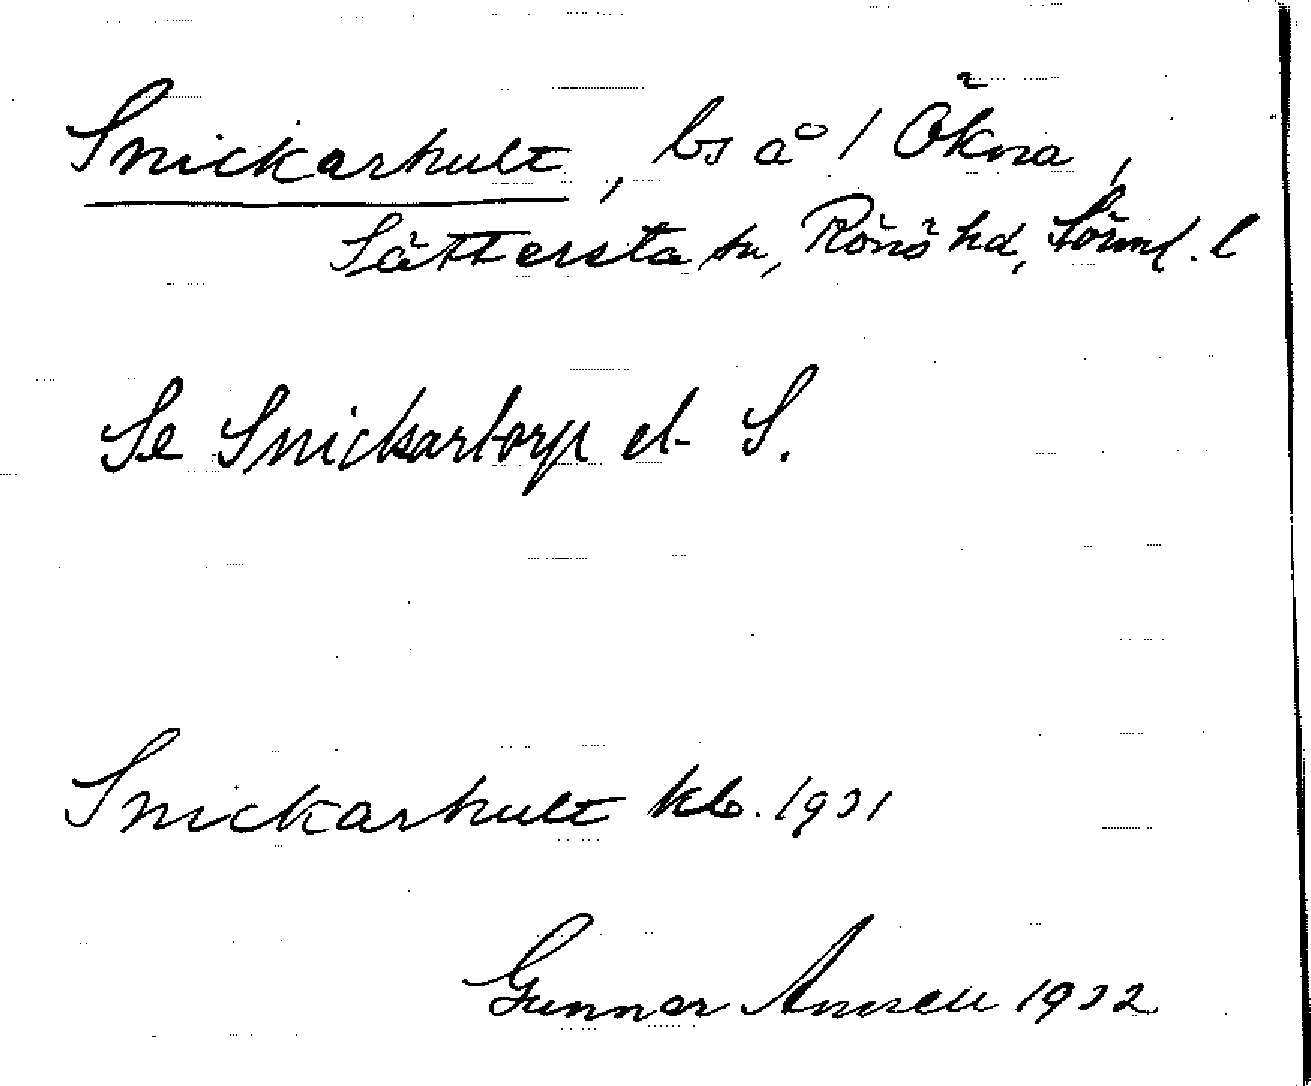 Snickarhult, bs å 1 Ökna,
Sättersta sn, Rönö hd, Sörml. l
Se Snickartorp el. S.
Snickarhult kb. 1931
Gunnar Annell 1932